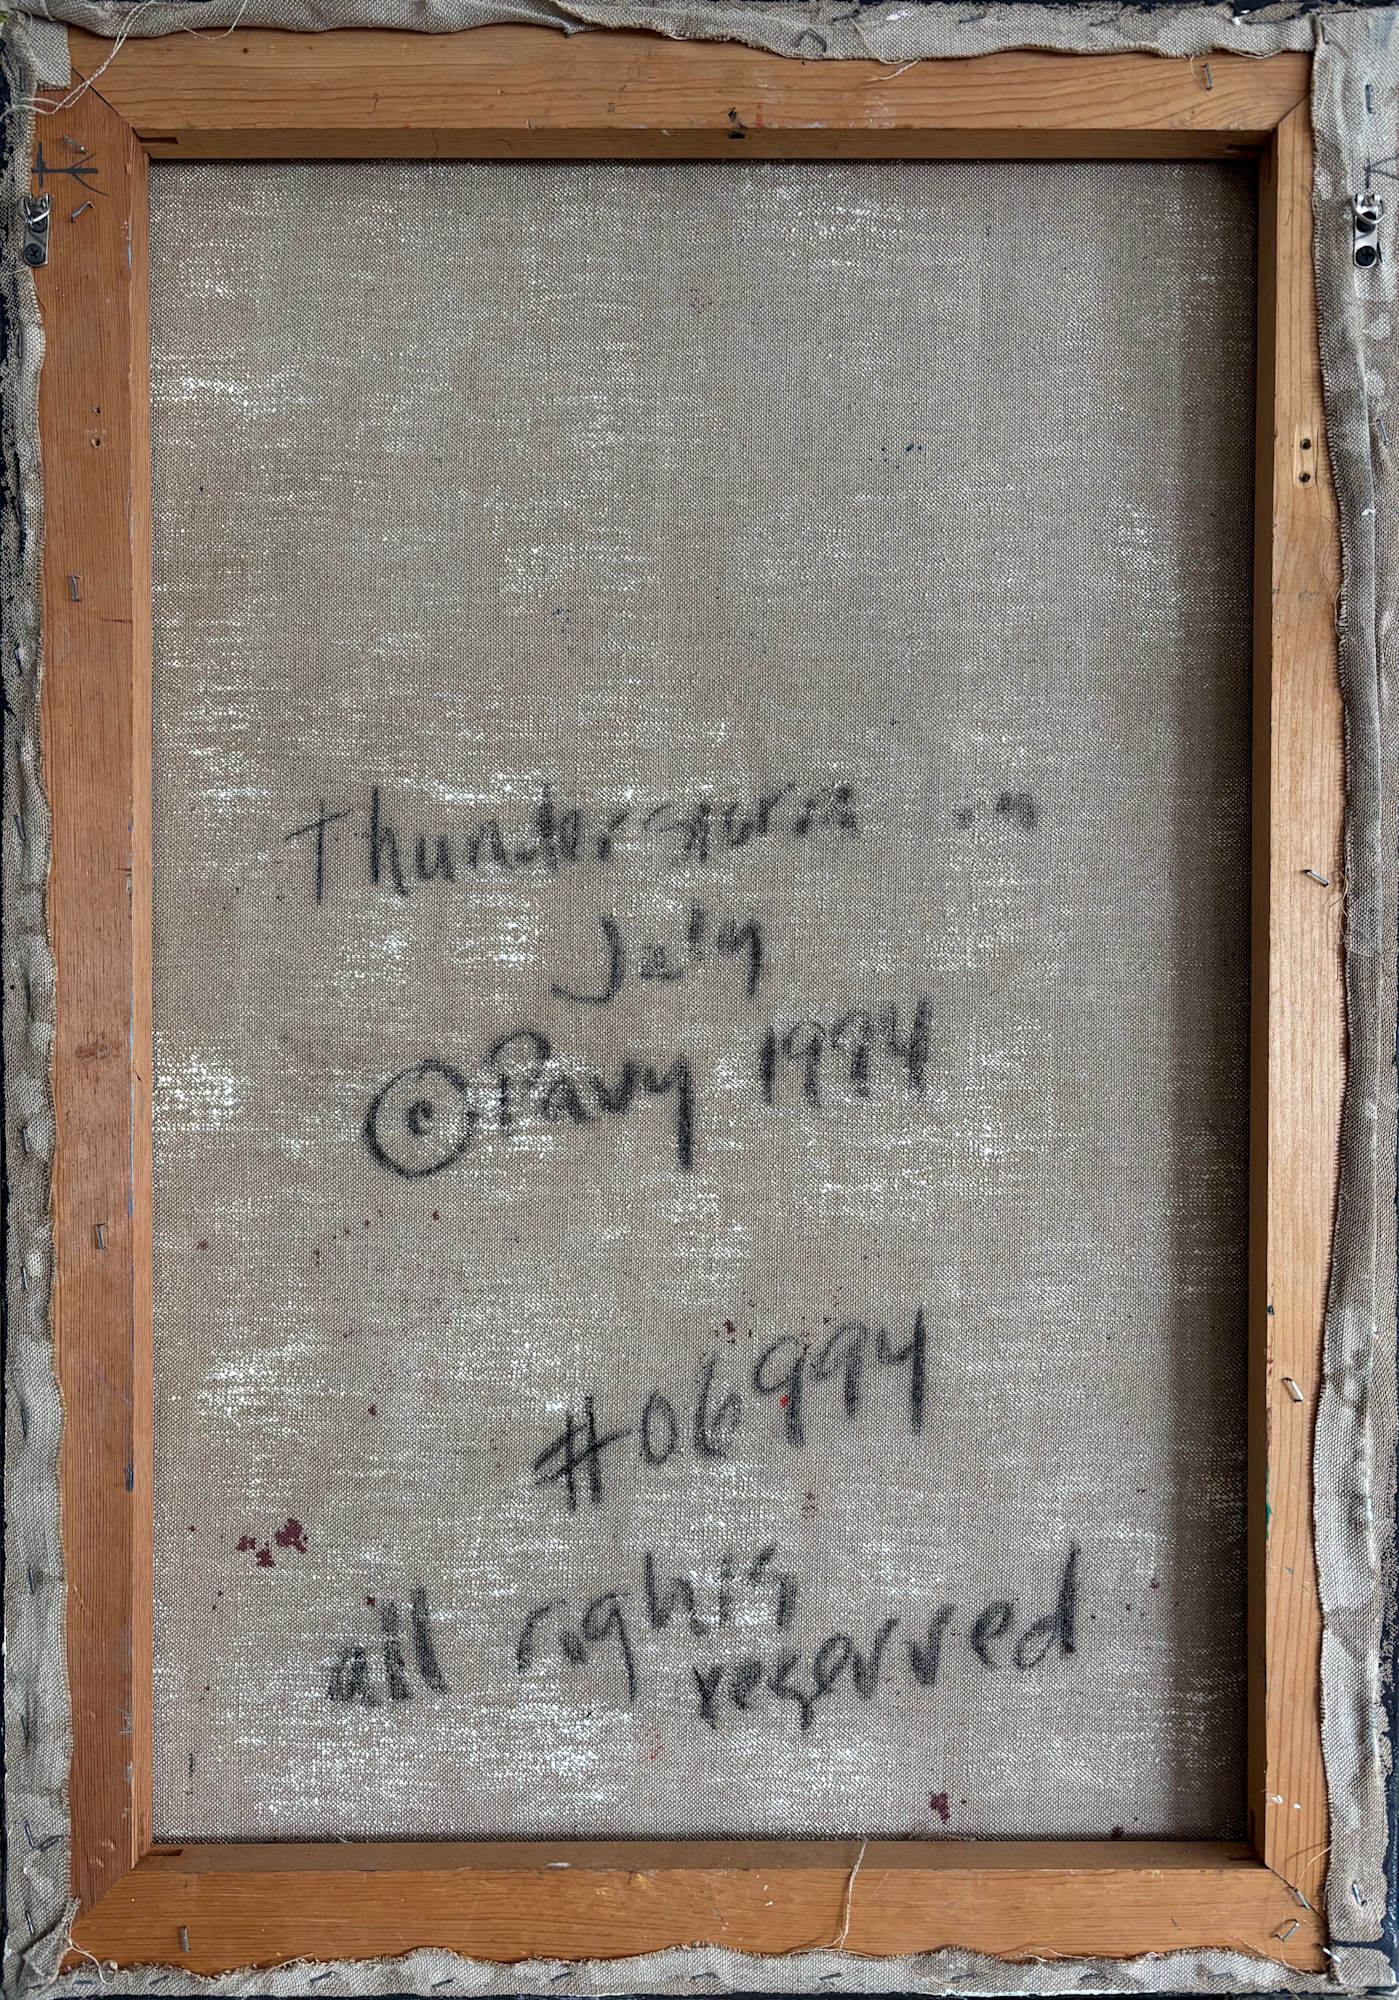 Thunderstorm in
July
© Pavy 1994
#06994
all rights
reserved